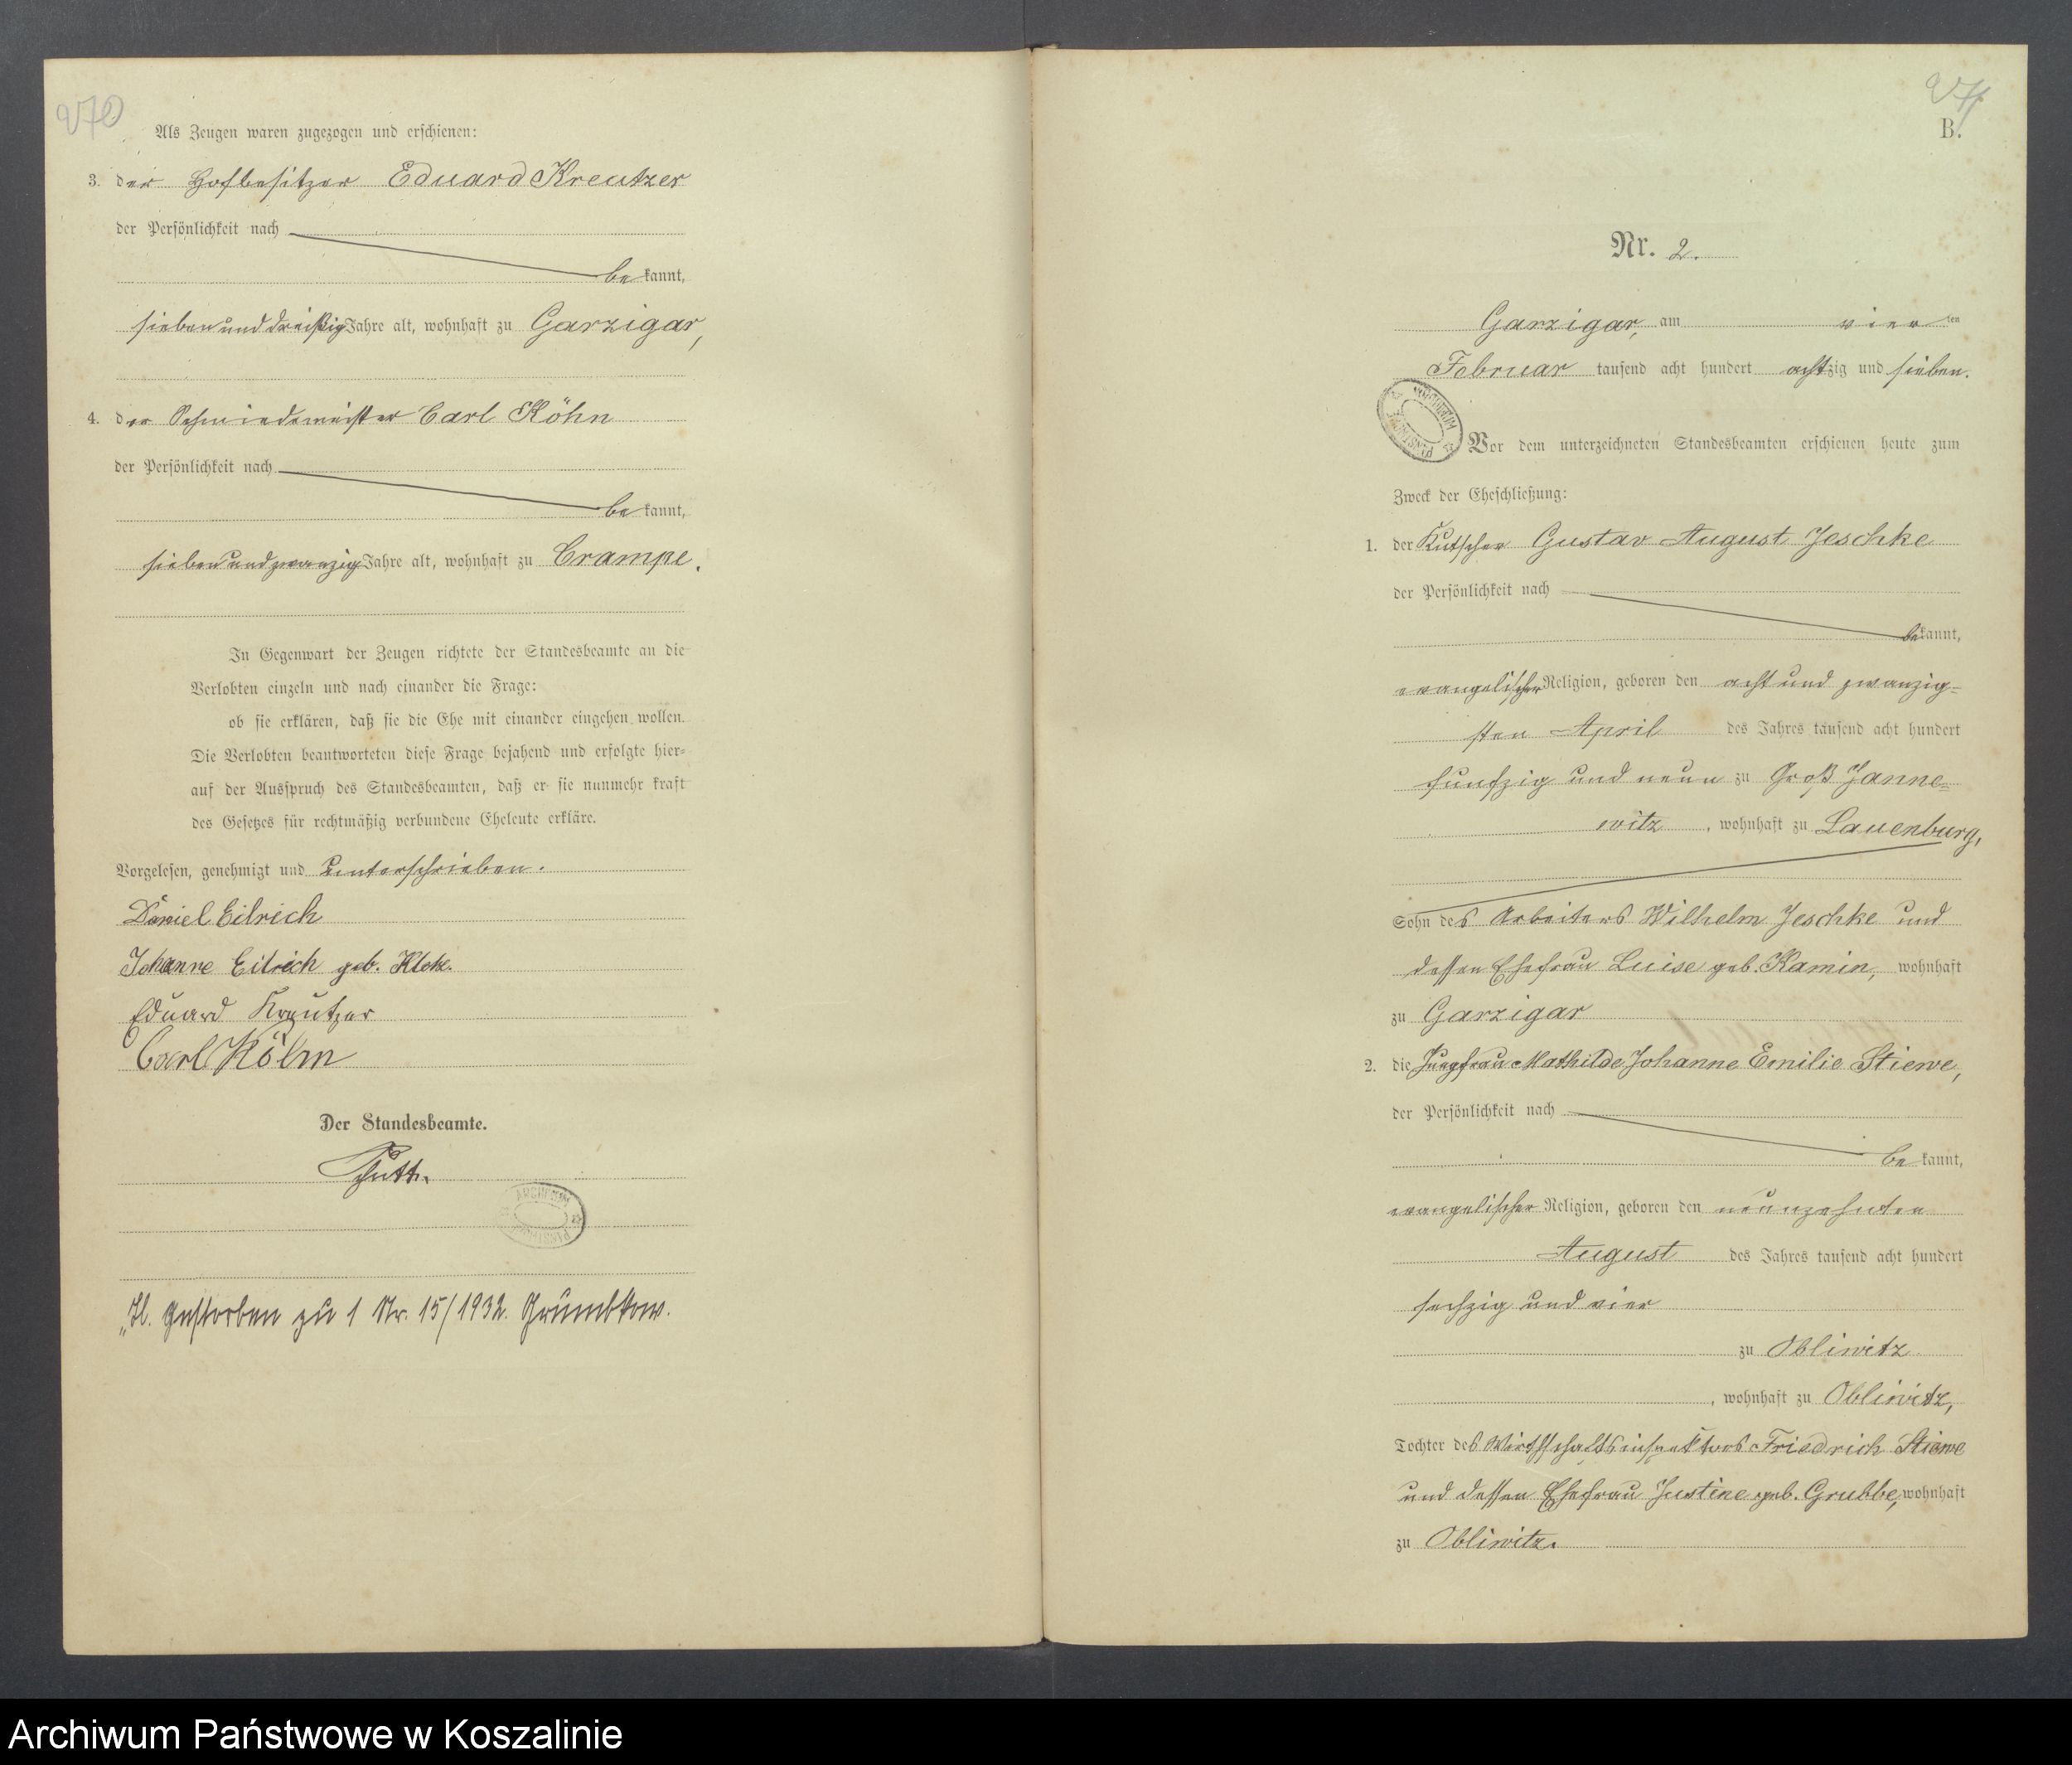 270
Als Zeugen waren zugezogen und erschienen:
3. der Hofbesitzer Eduard Kreutzer
der Persönlichkeit nach
be kannt,
sieben und dreißig Jahre alt, wohnhaft zu Garzigar,
4. der Schmiedemeister Carl Köhn
der Persönlichkeit nach
be kannt,
sieben und zwanzig Jahre alt, wohnhaft zu Crampe.
In Gegenwart der Zeugen richtete der Standesbeamte an die
Verlobten einzeln und nach einander die Frage:
ob sie erklären, daß sie die Ehe mit einander eingehen wollen.
Die Verlobten beantworteten diese Frage bejahend und erfolgte hier=
auf der Ausspruch des Standesbeamten, daß er sie nunmehr kraft
des Gesetzes für rechtmäßig verbundene Eheleute erkläre.
Vorgelesen, genehmigt und unterschrieben.
Daniel Eilrich
Johanne Eilrich geb.
Eduard Kreutzer
Carl Köhn
Der Standesbeamte.
ARCHIWUM PAŃSTWOWE
Gestorben zu 1 Nr. 15/1932. Grumbkow.
271
B.
Nr. 2.
Garzigar, am vier ten
Februar tausend acht hundert achtzig und sieben.
ARCHIWUM PAŃSTWOWE
Vor dem unterzeichneten Standesbeamten erschienen heute zum
Zweck der Eheschließung:
1. der Kutscher Gustav August Jeschke
der Persönlichkeit nach
be kannt,
evangelischer Religion, geboren den acht und zwanzig=
sten April des Jahres tausend acht hundert
funfzig und neun zu Groß Janne=
witz, wohnhaft zu Lauenburg,
Sohn des Arbeiters Wilhelm Jeschke und
dessen Ehefrau Luise geb. Kamin, wohnhaft
zu Garzigar
2. die Jungfrau Mathilde Johanne Emilie Stiewe,
der Persönlichkeit nach
be kannt,
evangelischer Religion, geboren den neunzehnten
August des Jahres tausend acht hundert
sechzig und vier
zu Obliwitz
, wohnhaft zu Obliwitz,
Tochter des Wirthschaftsinspektors Friedrich Stiewe
und dessen Ehefrau Justine geb. Grubbe, wohnhaft
zu Obliwitz.
Archiwum Państwowe w Koszalinie